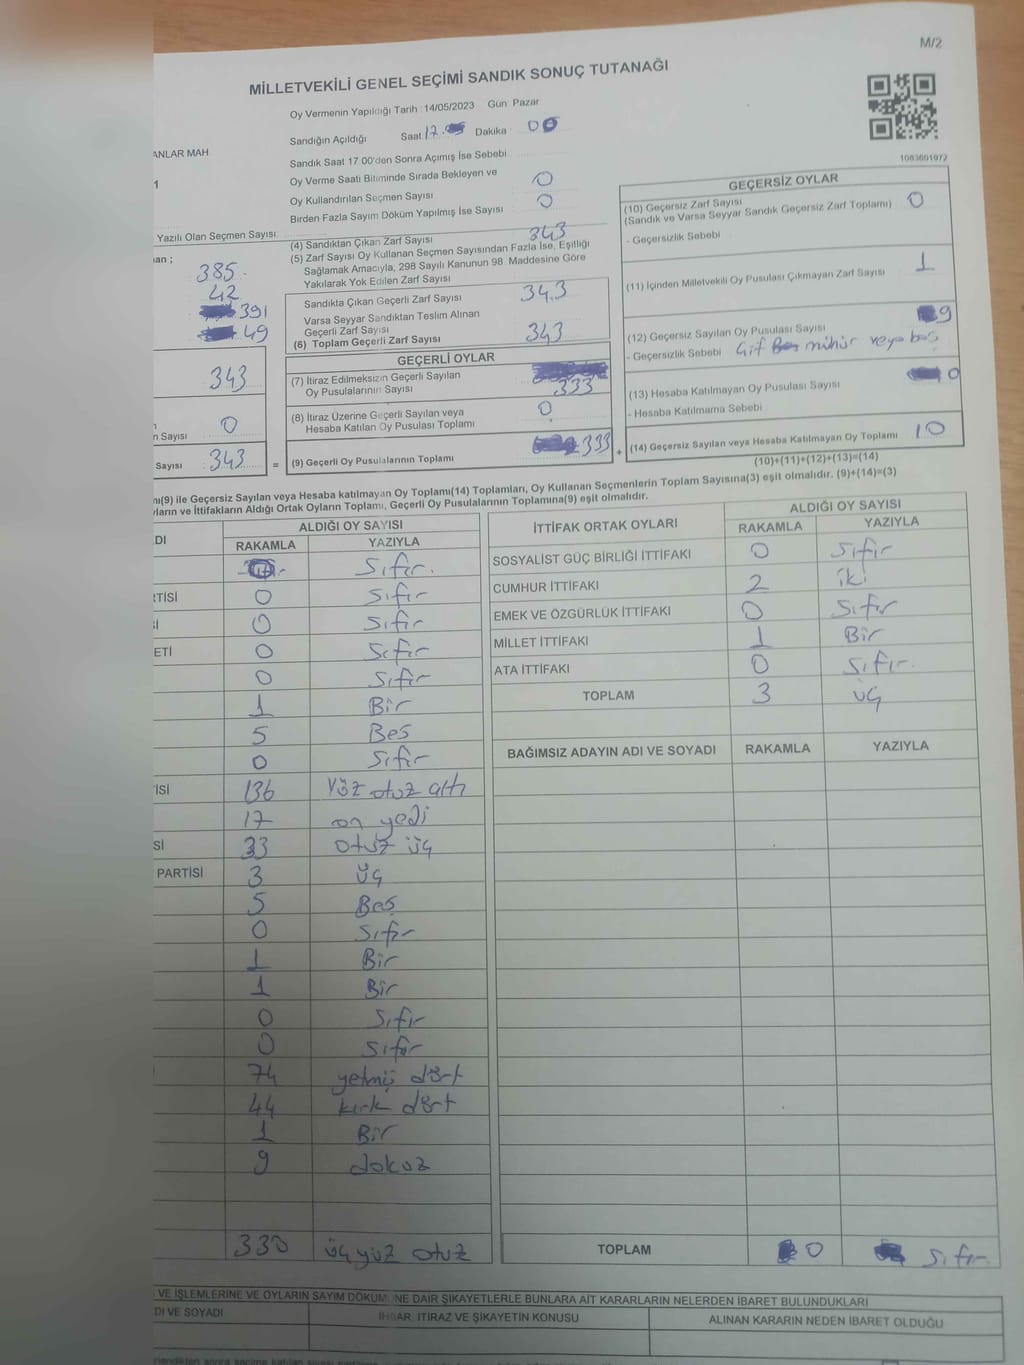 M/2
MİLLETVEKİLİ GENEL SEÇİMİ SANDIK SONUÇ TUTANAĞI
Oy Vermenin Yapıldığı Tarih : 14/05/2023 Gün Pazar
Sandığın Açıldığı Saat 17. Dakika 00
ANLAR MAH
Sandık Saat 17:00'den Sonra Açımış İse Sebebi
1083601972
1
Oy Verme Saati Bitiminde Sırada Bekleyen ve
Oy Kullandırılan Seçmen Sayısı 0
Birden Fazla Sayım Döküm Yapılmış İse Sayısı 0
Yazılı Olan Seçmen Sayısı
an ;
385
42
391
49
343
0
n Sayısı
Sayısı 343 =
(4) Sandıktan Çıkan Zarf Sayısı 343
(5) Zarf Sayısı Oy Kullanan Seçmen Sayısından Fazla İse, Eşitliği
Sağlamak Amacıyla, 298 Sayılı Kanunun 98 Maddesine Göre
Yakılarak Yok Edilen Zarf Sayısı
Sandıkta Çıkan Geçerli Zarf Sayısı 343
Varsa Seyyar Sandıktan Teslim Alınan
Geçerli Zarf Sayısı
(6) Toplam Geçerli Zarf Sayısı 343
GEÇERLİ OYLAR
(7) İtiraz Edilmeksizin Geçerli Sayılan
Oy Pusulalarının Sayısı 333
(8) İtiraz Üzerine Geçerli Sayılan veya
Hesaba Katılan Oy Pusulası Toplamı 0
(9) Geçerli Oy Pusulalarının Toplamı 333 +
GEÇERSİZ OYLAR
(10) Geçersiz Zarf Sayısı
(Sandık ve Varsa Seyyar Sandık Geçersiz Zarf Toplamı) 0
- Geçersizlik Sebebi
(11) İçinden Milletvekili Oy Pusulası Çıkmayan Zarf Sayısı 1
(12) Geçersiz Sayılan Oy Pusulası Sayısı 9
- Geçersizlik Sebebi Çift mühür veya boş
(13) Hesaba Katılmayan Oy Pusulası Sayısı 0
- Hesaba Katılmama Sebebi
(14) Geçersiz Sayılan veya Hesaba Katılmayan Oy Toplamı 10
(10)+(11)+(12)+(13)=(14)
ı(9) ile Geçersiz Sayılan veya Hesaba katılmayan Oy Toplamı(14) Toplamları, Oy Kullanan Seçmenlerin Toplam Sayısına(3) eşit olmalıdır. (9)+(14)=(3)
yların ve İttifakların Aldığı Ortak Oyların Toplamı, Geçerli Oy Pusulalarının Toplamına(9) eşit olmalıdır.
DI ALDIĞI OY SAYISI
RAKAMLA YAZIYLA
Sıfır.
RTİSİ 0 Sıfır
İ 0 Sıfır
ETİ 0 Sıfır
0 Sıfır
1 Bir
5 Beş
0 Sıfır
İSİ 136 Yüz otuz altı
17 on yedi
Sİ 33 otuz üç
PARTİSİ 3 üç
5 Beş
0 Sıfır
1 Bir
1 Bir
0 Sıfır
0 Sıfır
74 yetmiş dört
44 kırk dört
1 Bir
9 dokuz
330 üç yüz otuz
İTTİFAK ORTAK OYLARI ALDIĞI OY SAYISI
RAKAMLA YAZIYLA
SOSYALİST GÜÇ BİRLİĞİ İTTİFAKI 0 Sıfır
CUMHUR İTTİFAKI 2 iki
EMEK VE ÖZGÜRLÜK İTTİFAKI 0 Sıfır
MİLLET İTTİFAKI 1 Bir
ATA İTTİFAKI 0 Sıfır.
TOPLAM 3 üç
BAĞIMSIZ ADAYIN ADI VE SOYADI RAKAMLA YAZIYLA
TOPLAM 0 Sıfır.
VE İŞLEMLERİNE VE OYLARIN SAYIM DÖKÜMÜNE DAİR ŞİKAYETLERLE BUNLARA AİT KARARLARIN NELERDEN İBARET BULUNDUKLARI
DI VE SOYADI İHBAR, İTİRAZ VE ŞİKAYETİN KONUSU ALINAN KARARIN NEDEN İBARET OLDUĞU